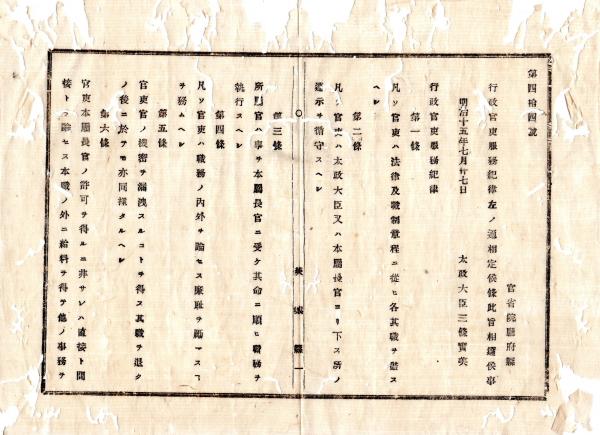 第四拾四號
官省院廳府縣
行政官吏服務紀律左ノ通相定候條此旨相達候事
明治十五年七月廿七日
太政大臣三條實美
行政官吏服務紀律
第一條
凡ソ官吏ハ法律及職制章程ニ從ヒ各其職ヲ盡ス
ヘシ
第二條
凡ソ官吏ハ太政大臣又ハ本屬長官ヨリ下ス所ノ
達示ヲ循守スヘシ
茨城縣 一
第三條
所屬官ハ事ヲ本屬長官ニ受ケ其命ニ順ヒ職務ヲ
執行スヘシ
第四條
凡ソ官吏ハ職務ノ內外ヲ論セス廉耻ヲ
ヲ務ムヘシ
第五條
官吏官ノ機密ヲ漏洩スルコトヲ得ス其職ヲ退ク
ノ後ニ於テモ亦同樣タルヘシ
第六條
官吏本屬長官ノ許可ヲ得ルニ非サレハ直接ト間
接トヲ論セス本職ノ外ニ給料ヲ得テ他ノ事務ヲ